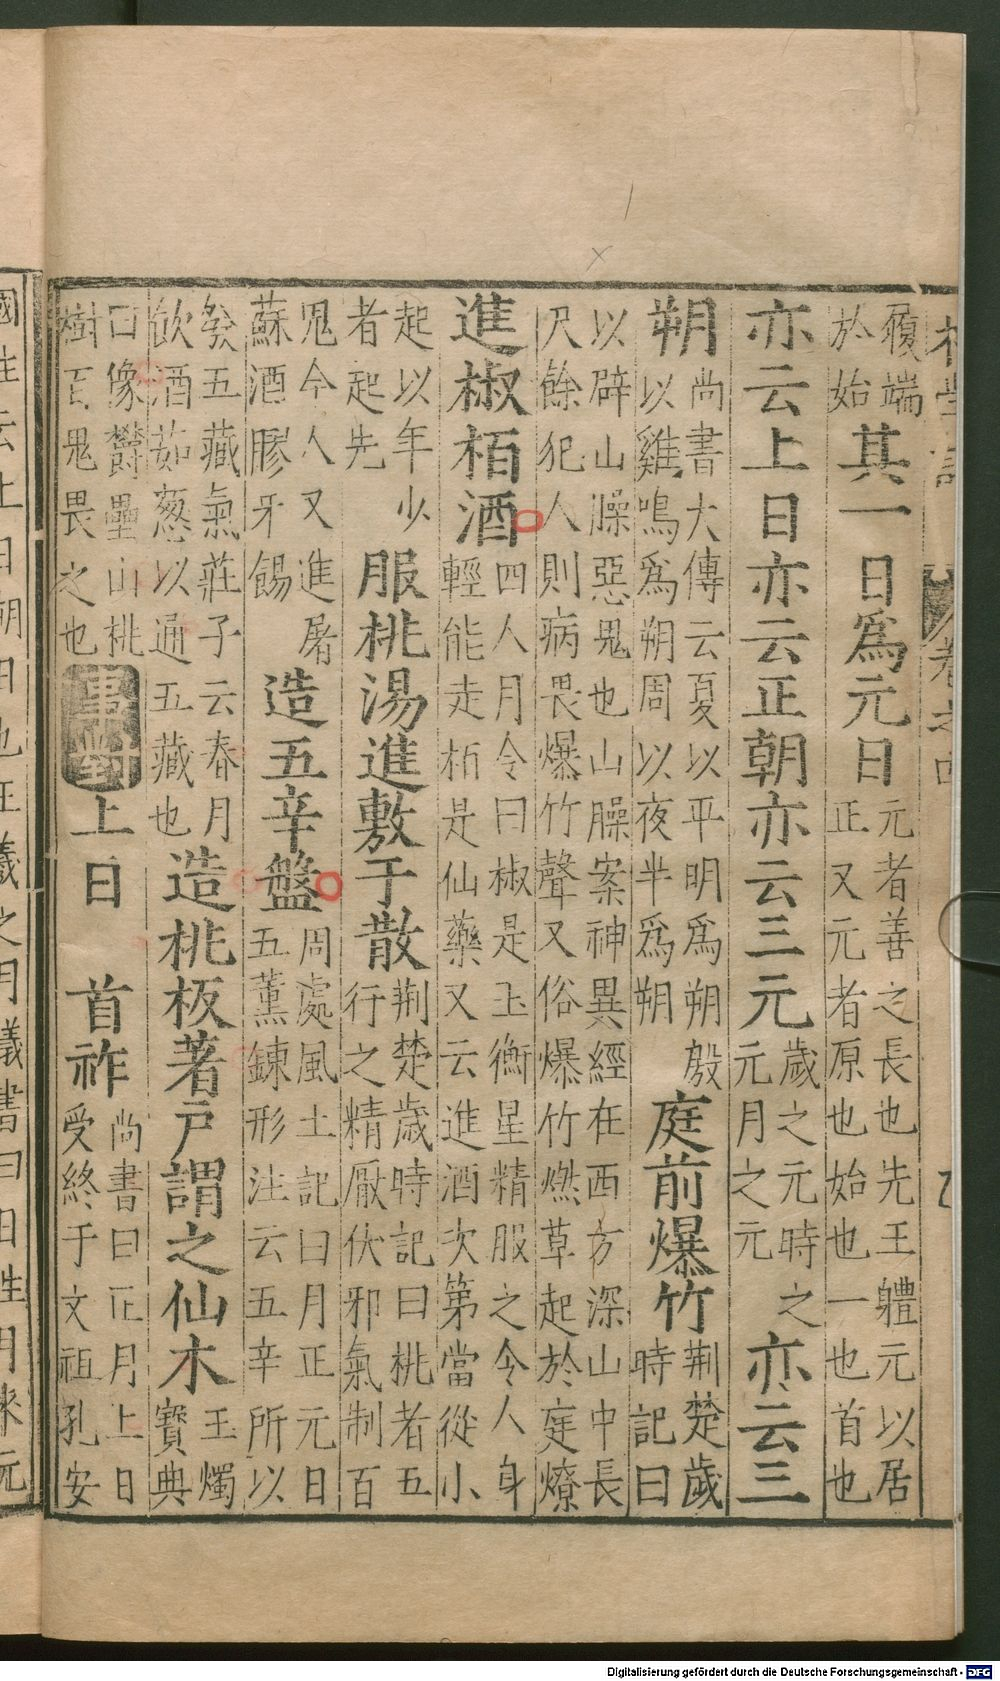 履端
於始
其一日爲元日
元者善之長也先王體元以居
正又元者原也始也一也首也
亦云上日亦云正朝亦云三元
歲之元時之
元月之元
亦云三
朔
尚書大傳云夏以平明爲朔殷
以雞鳴爲朔周以夜半爲朔
庭前爆竹
荆楚歲
時記曰
以辟山臊惡鬼也山臊案神異經在西方深山中長
尺餘犯人則病畏爆竹聲又俗爆竹燃草起於庭燎
進椒栢酒
四人月令曰椒是玉衡星精服之令人身
輕能走栢是仙藥又云進酒次第當從小
起以年少
者起先
服桃湯進敷于散
荆楚歲時記曰桃者五
行之精厭伏邪氣制百
鬼今人又進屠
蘇酒膠牙餳
造五辛盤
周處風土記曰月正元日
五薰鍊形注云五辛所以
發五藏氣莊子云春月
飲酒茹葱以通五藏也
造桃板著戶謂之仙木
玉燭
寶典
曰像欝壘山桃
樹百鬼畏之也
上日
首祚
尚書曰正月上日
受終于文祖孔安
卷之四
Digitalisierung gefördert durch die Deutsche Forschungsgemeinschaft - DFG